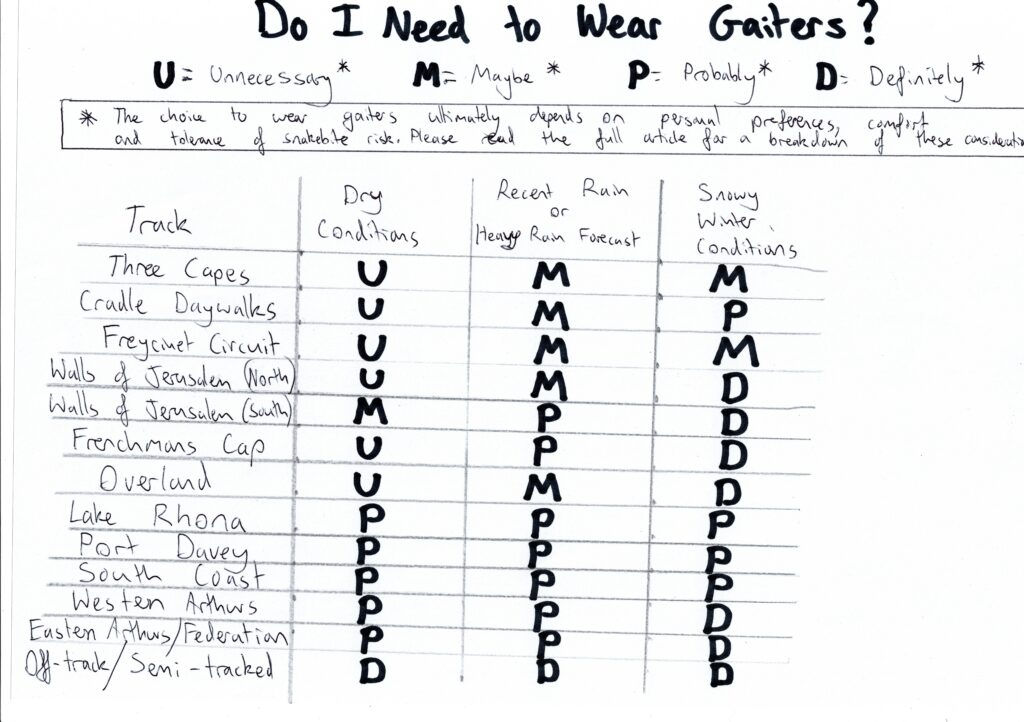 Do I Need to Wear Gaiters?
U= Unnecessary* M= Maybe * P= Probably* D= Definitely*
* The choice to wear gaiters ultimately depends on personal preferences, comfort
and tolerance of snakebite risk. Please read the full article for a breakdown of these consideration
Track Dry Conditions Recent Rain or Heavy Rain Forecast Snowy Winter Conditions
Three Capes U M M
Cradle Daywalks U M P
Freycinet Circuit U M M
Walls of Jerusalem (North) U M D
Walls of Jerusalem (South) M P D
Frenchmans Cap U P D
Overland U M D
Lake Rhona P P P
Port Davey P P P
South Coast P P P
Western Arthurs P P D
Eastern Arthurs/Federation P P D
Off-track/Semi-tracked D D D